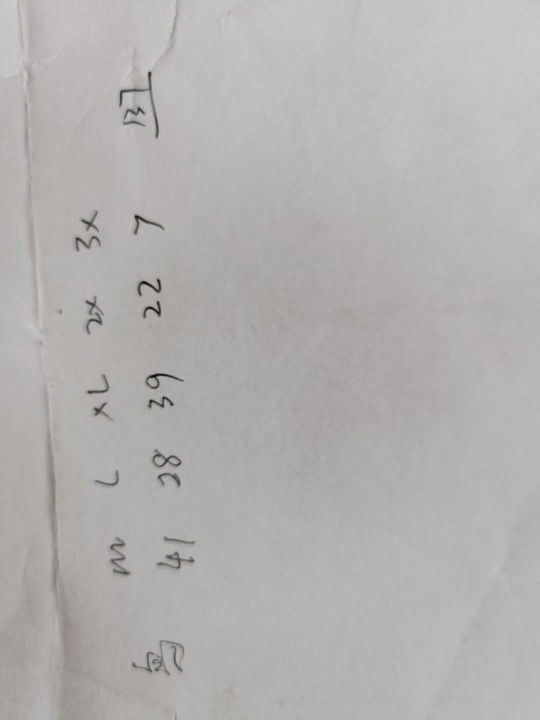 m L XL 2X 3X
41 28 39 22 7 137